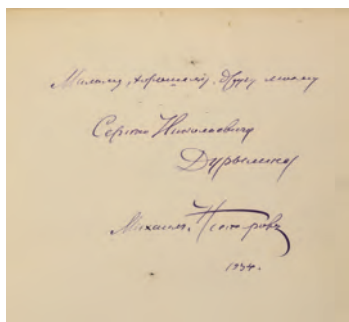 Милому, хорошему, другу моему
Сергею Николаевичу
Дурылину
Михаилъ Нестеровъ
1934.